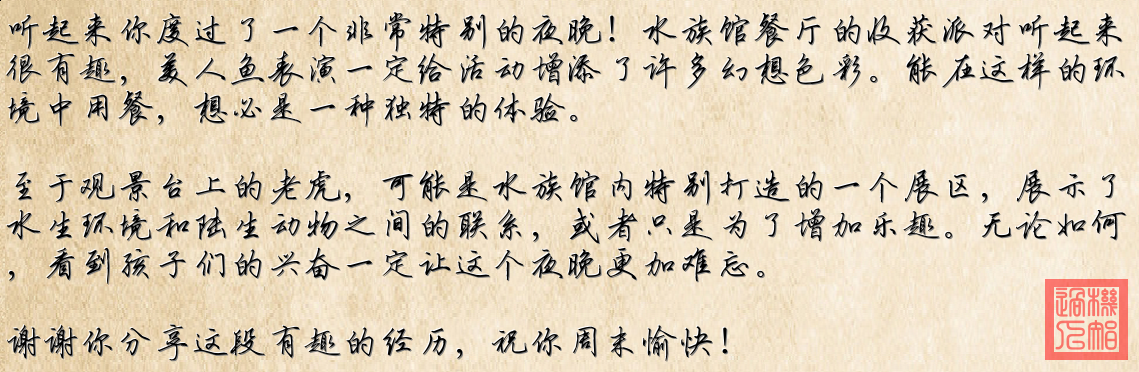 听起来你度过了一个非常特别的夜晚！水族馆餐厅的收获派对听起来
很有趣，美人鱼表演一定给活动增添了许多幻想色彩。能在这样的环
境中用餐，想必是一种独特的体验。
至于观景台上的老虎，可能是水族馆内特别打造的一个展区，展示了
水生环境和陆生动物之间的联系，或者只是为了增加乐趣。无论如何
，看到孩子们的兴奋一定让这个夜晚更加难忘。
谢谢你分享这段有趣的经历，祝你周末愉快！